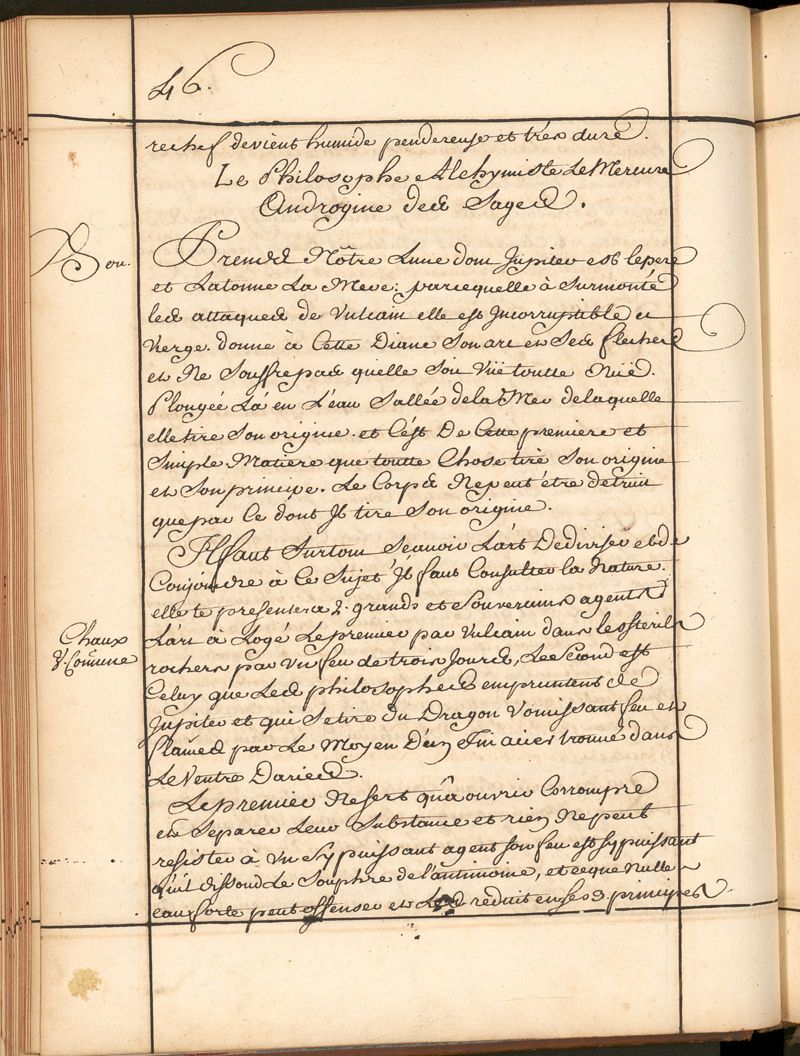 46.
rechef devient humide pendereuse et trés dure.
Le Philosophe Alchymiste Le Mercure
Androgine des Sages.
Bon.
Prends Nôtre Lune dont Jupiter est lepere
et Latonne La Mere: parcequelle à Surmonté
les attaques de Vulcain elle est Jncorruptible et
Vierge. donne à Cette Diane Son arc et Ses fleches
et Ne Souffrepas quelle Soit Vüe toutte Nüe.
Plongée Lá en L'eau Sallée dela Mer delaquelle
elle tire Son origine. et C'est De Cette premiere et
Simple Matiere que toutte Chose tire Son origine
et Son principe. Le Corps Nepeut étre détruit
que par Ce dont Jl tire Son origine.
Jl faut Surtout Scauoir L'art Dediviser et de
Conjoindre à Ce Sujet Jl faut Consulter la Nature.
elle te presentera 2. grands et Souverains agents
Chaux
V. Comune
L'art à Logé Lepremier par Vulcain dans les steriles
rochers par Vn feu de trois Jours, Le Second est
Celuy que Les philosophes empruntent de
Jupiter et qui Setire du Dragon Vomissant feu et
flames par Le Moyen D'un Fin acier trouué dans
Le Ventre Daries.
Lepremier Nesert qu'à ouvrir Corrompre
et Separer Leur Substance et rien Nepeut
resister à Vn Sy puissant agent son feu est sy puissant
qu'il dissoud Le Souphre de l'antimoine, et ceque Nulle
eau forte peut offenser et Les reduit en ses 3 principes